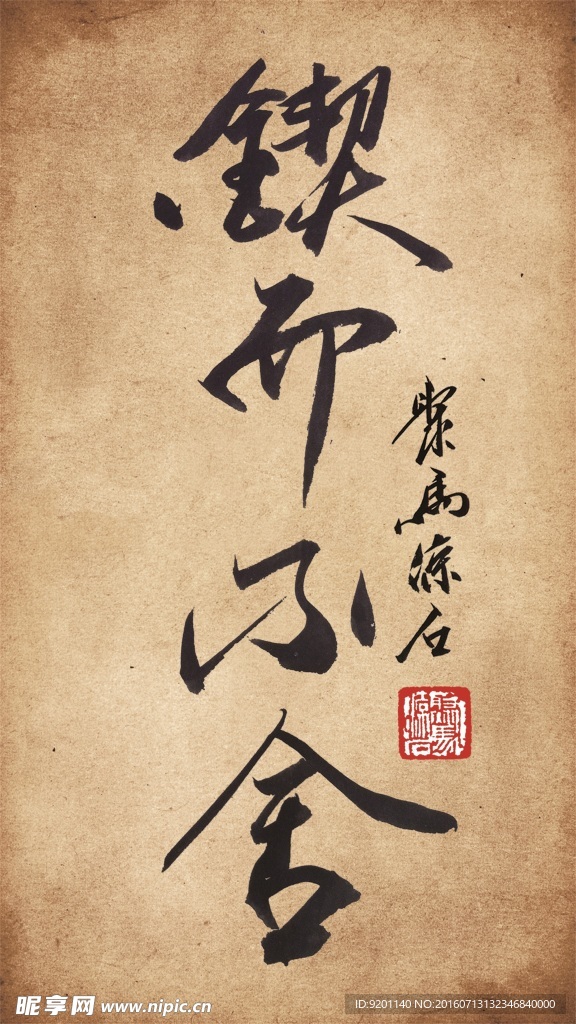 锲而不舍
马凉石
昵享网 www.nipic.cn
ID:9201140 NO:20160713132346840000